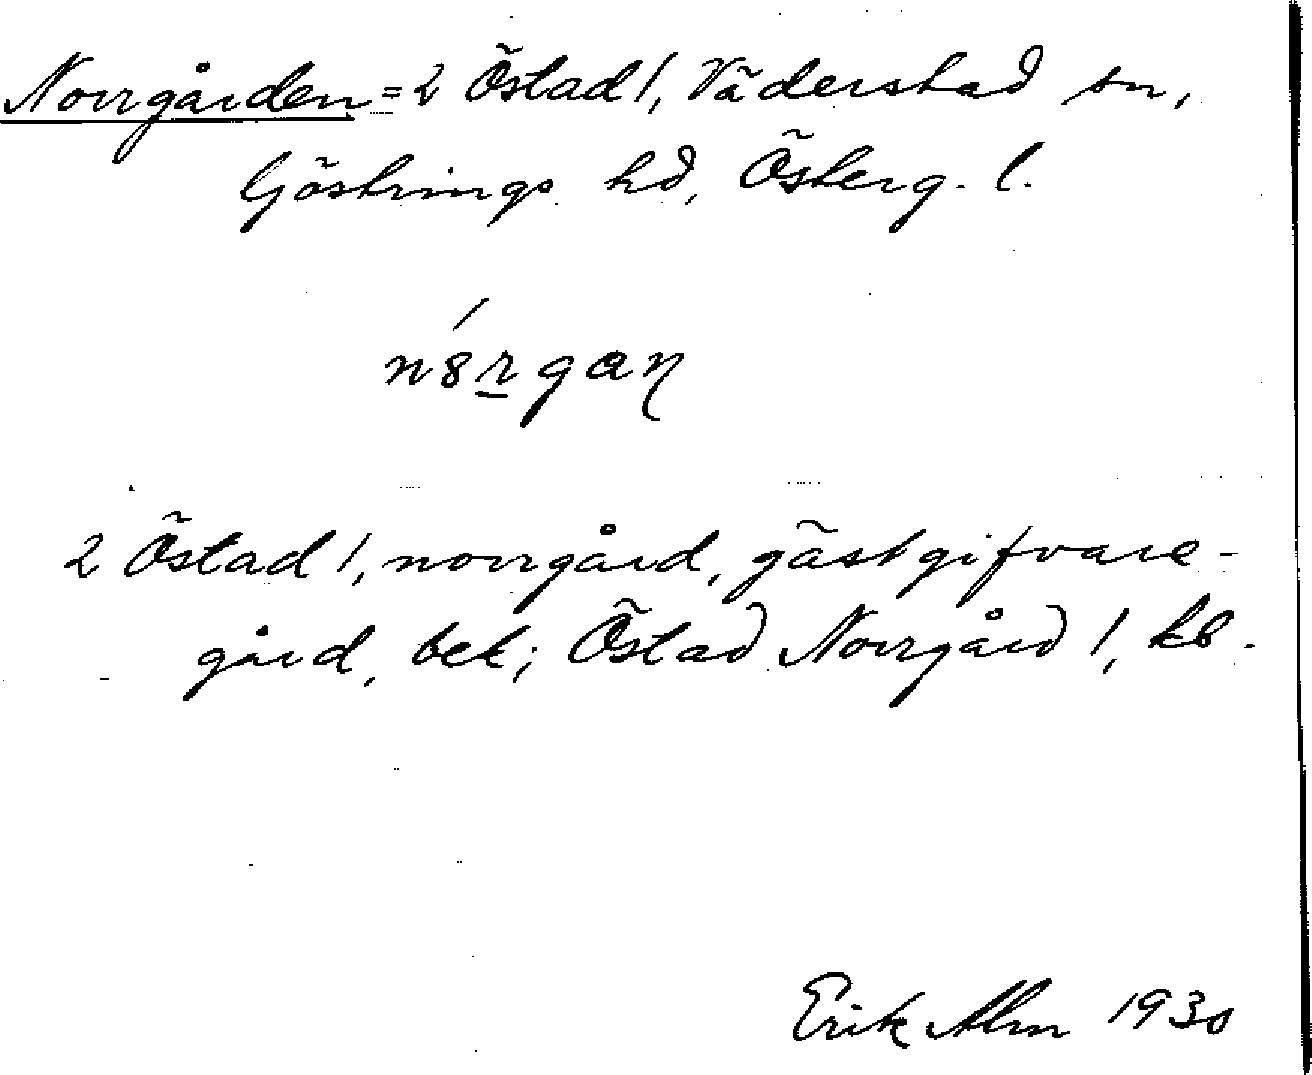 Norrgården = 2 Östad 1, Väderstad sn,
Göstrings hd, Österg. l.
n8rgaꞃ
2 Östad 1, norrgård, gästgifvare-
gård, bek; Östad Norrgård 1, kb.
Erik Alm 1930